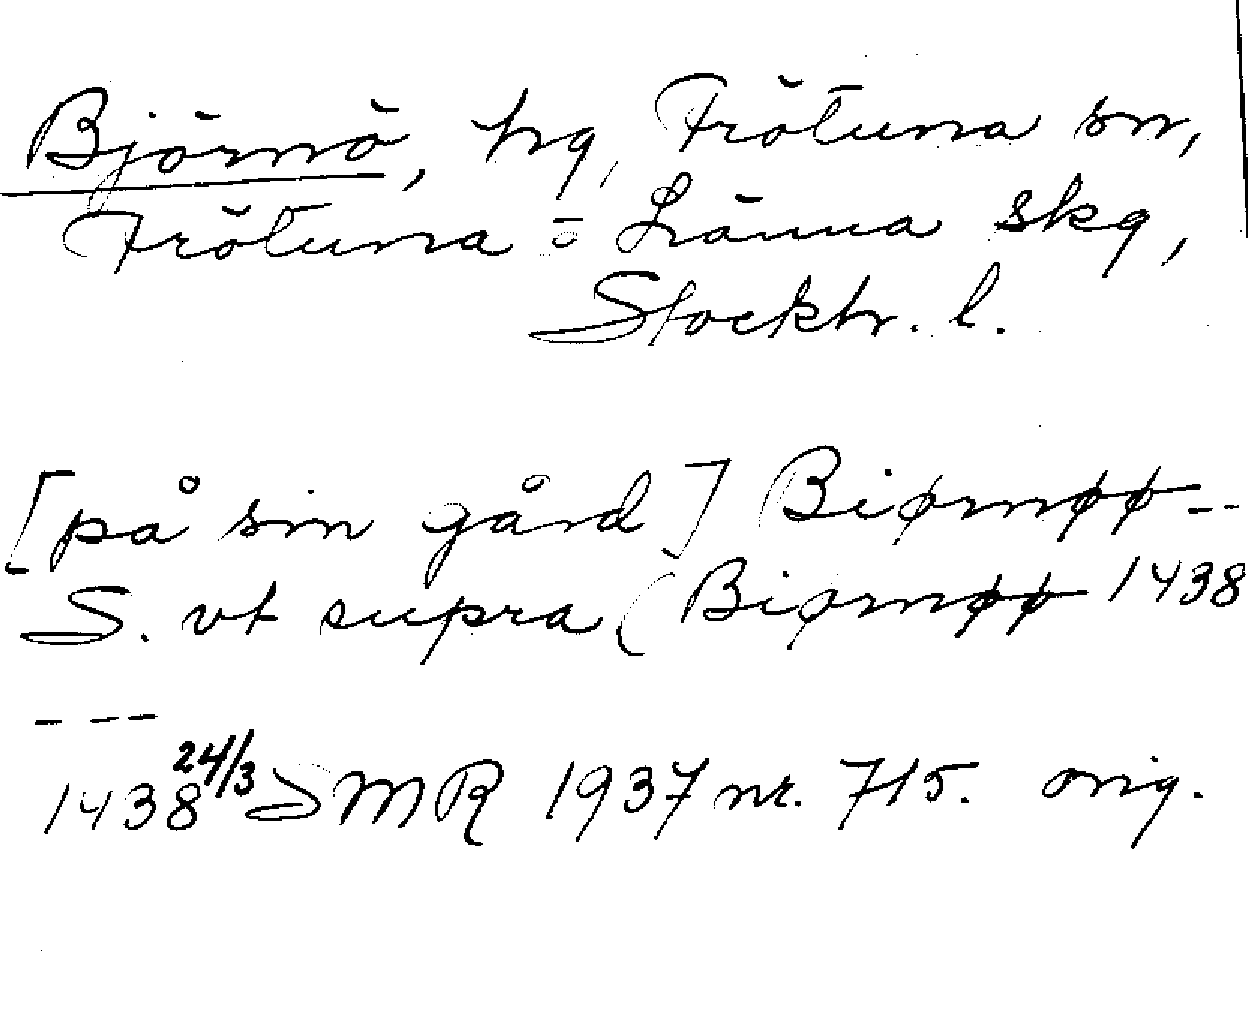 Björnö, hg, Frötuna sn,
Frötuna = Länna skg,
Stockh. l.
[på sin gård] Biørnøø --
S. vt supra (Biørnøø 1438
- - -
1438 24/3 SMR 1937 nr. 715. orig.